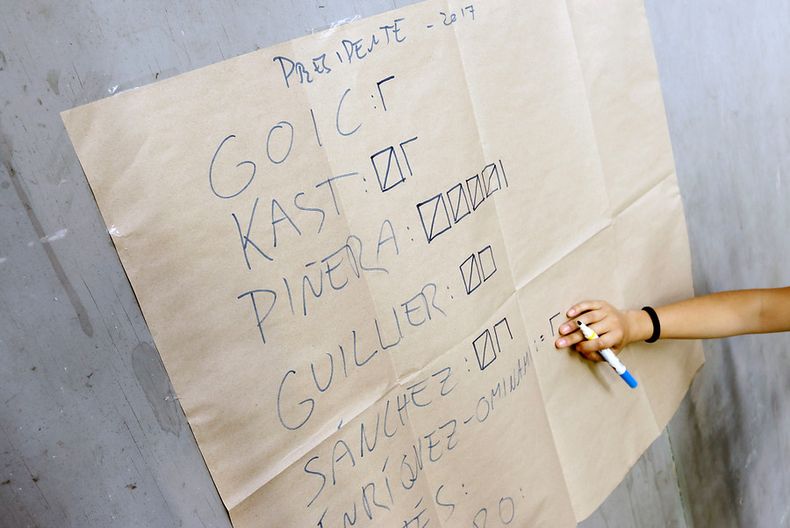 PRESIDENTE - 2017
GOIC:
KAST:
PIÑERA:
GUILLIER:
SÁNCHEZ:
ENRÍQUEZ-OMINAMI: